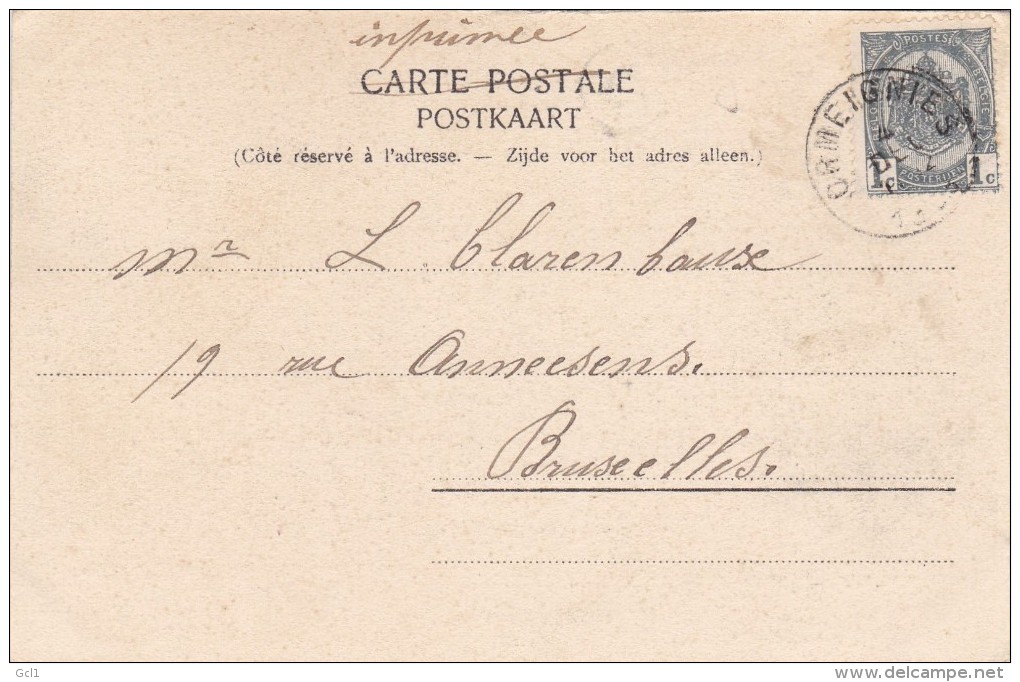 imprimée
CARTE POSTALE
POSTKAART
(Côté réservé à l'adresse. — Zijde voor het adres alleen.)
POSTES
ORMEIGNIES
POSTERIJEN
1c 1c
Mr L Clarenbaux
19 rue Anneesens.
Bruxelles.
Gcl1
www.delcampe.net